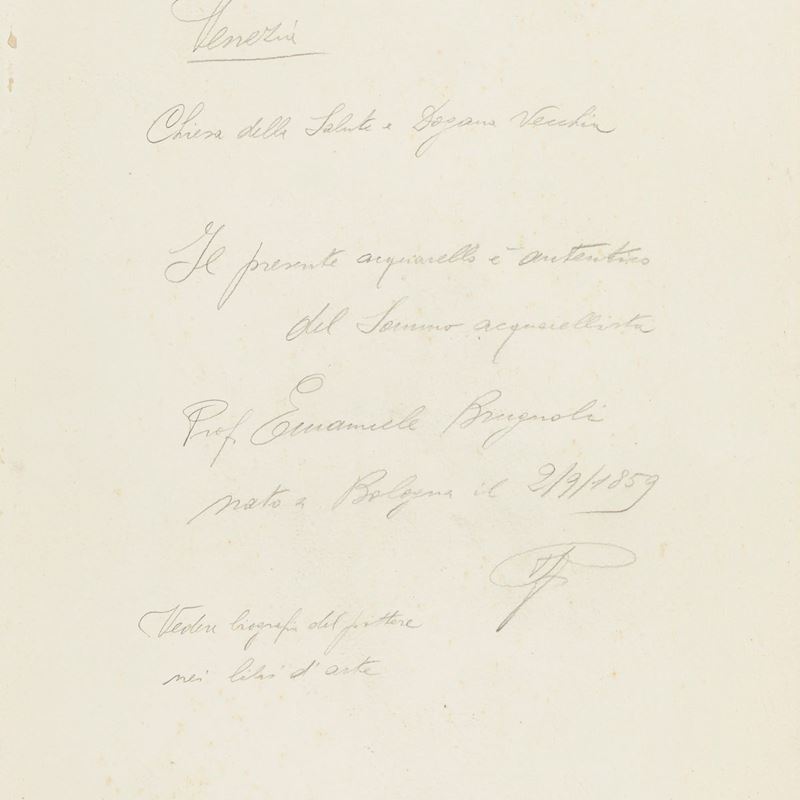 Venezia
Chiesa della Salute e Dogana Vecchia
Il presente acquarello è autentico
del Sommo acquarellista
Prof Emanuele Brugnoli
nato a Bologna il 2/9/1859
Vedere biografia del pittore
nei libri d'arte